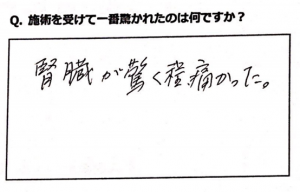 Q. 施術を受けて一番驚かれたのは何ですか？
腎臓が驚く程痛かった。